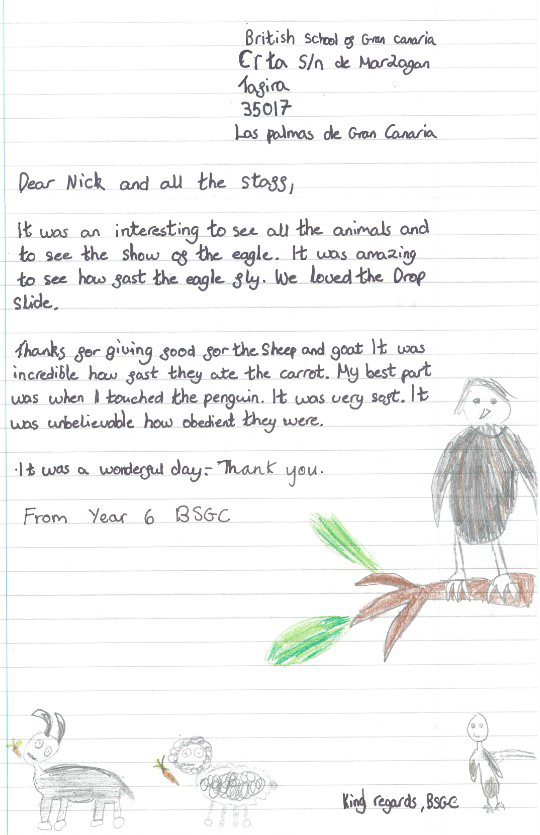 British School of Gran Canaria
Crta S/n de Marzagan
Tafira
35017
Las palmas de Gran Canaria
Dear Nick and all the staff,
It was an interesting to see all the animals and
to see the show of the eagle. It was amazing
to see how fast the eagle fly. We loved the Drop
Slide.
Thanks for giving food for the Sheep and goat It was
incredible how fast they ate the carrot. My best part
was when I touched the penguin. It was very soft. It
was unbelievable how obedient they were.
It was a wonderful day. Thank you.
From Year 6 BSGC
King regards, BSGC